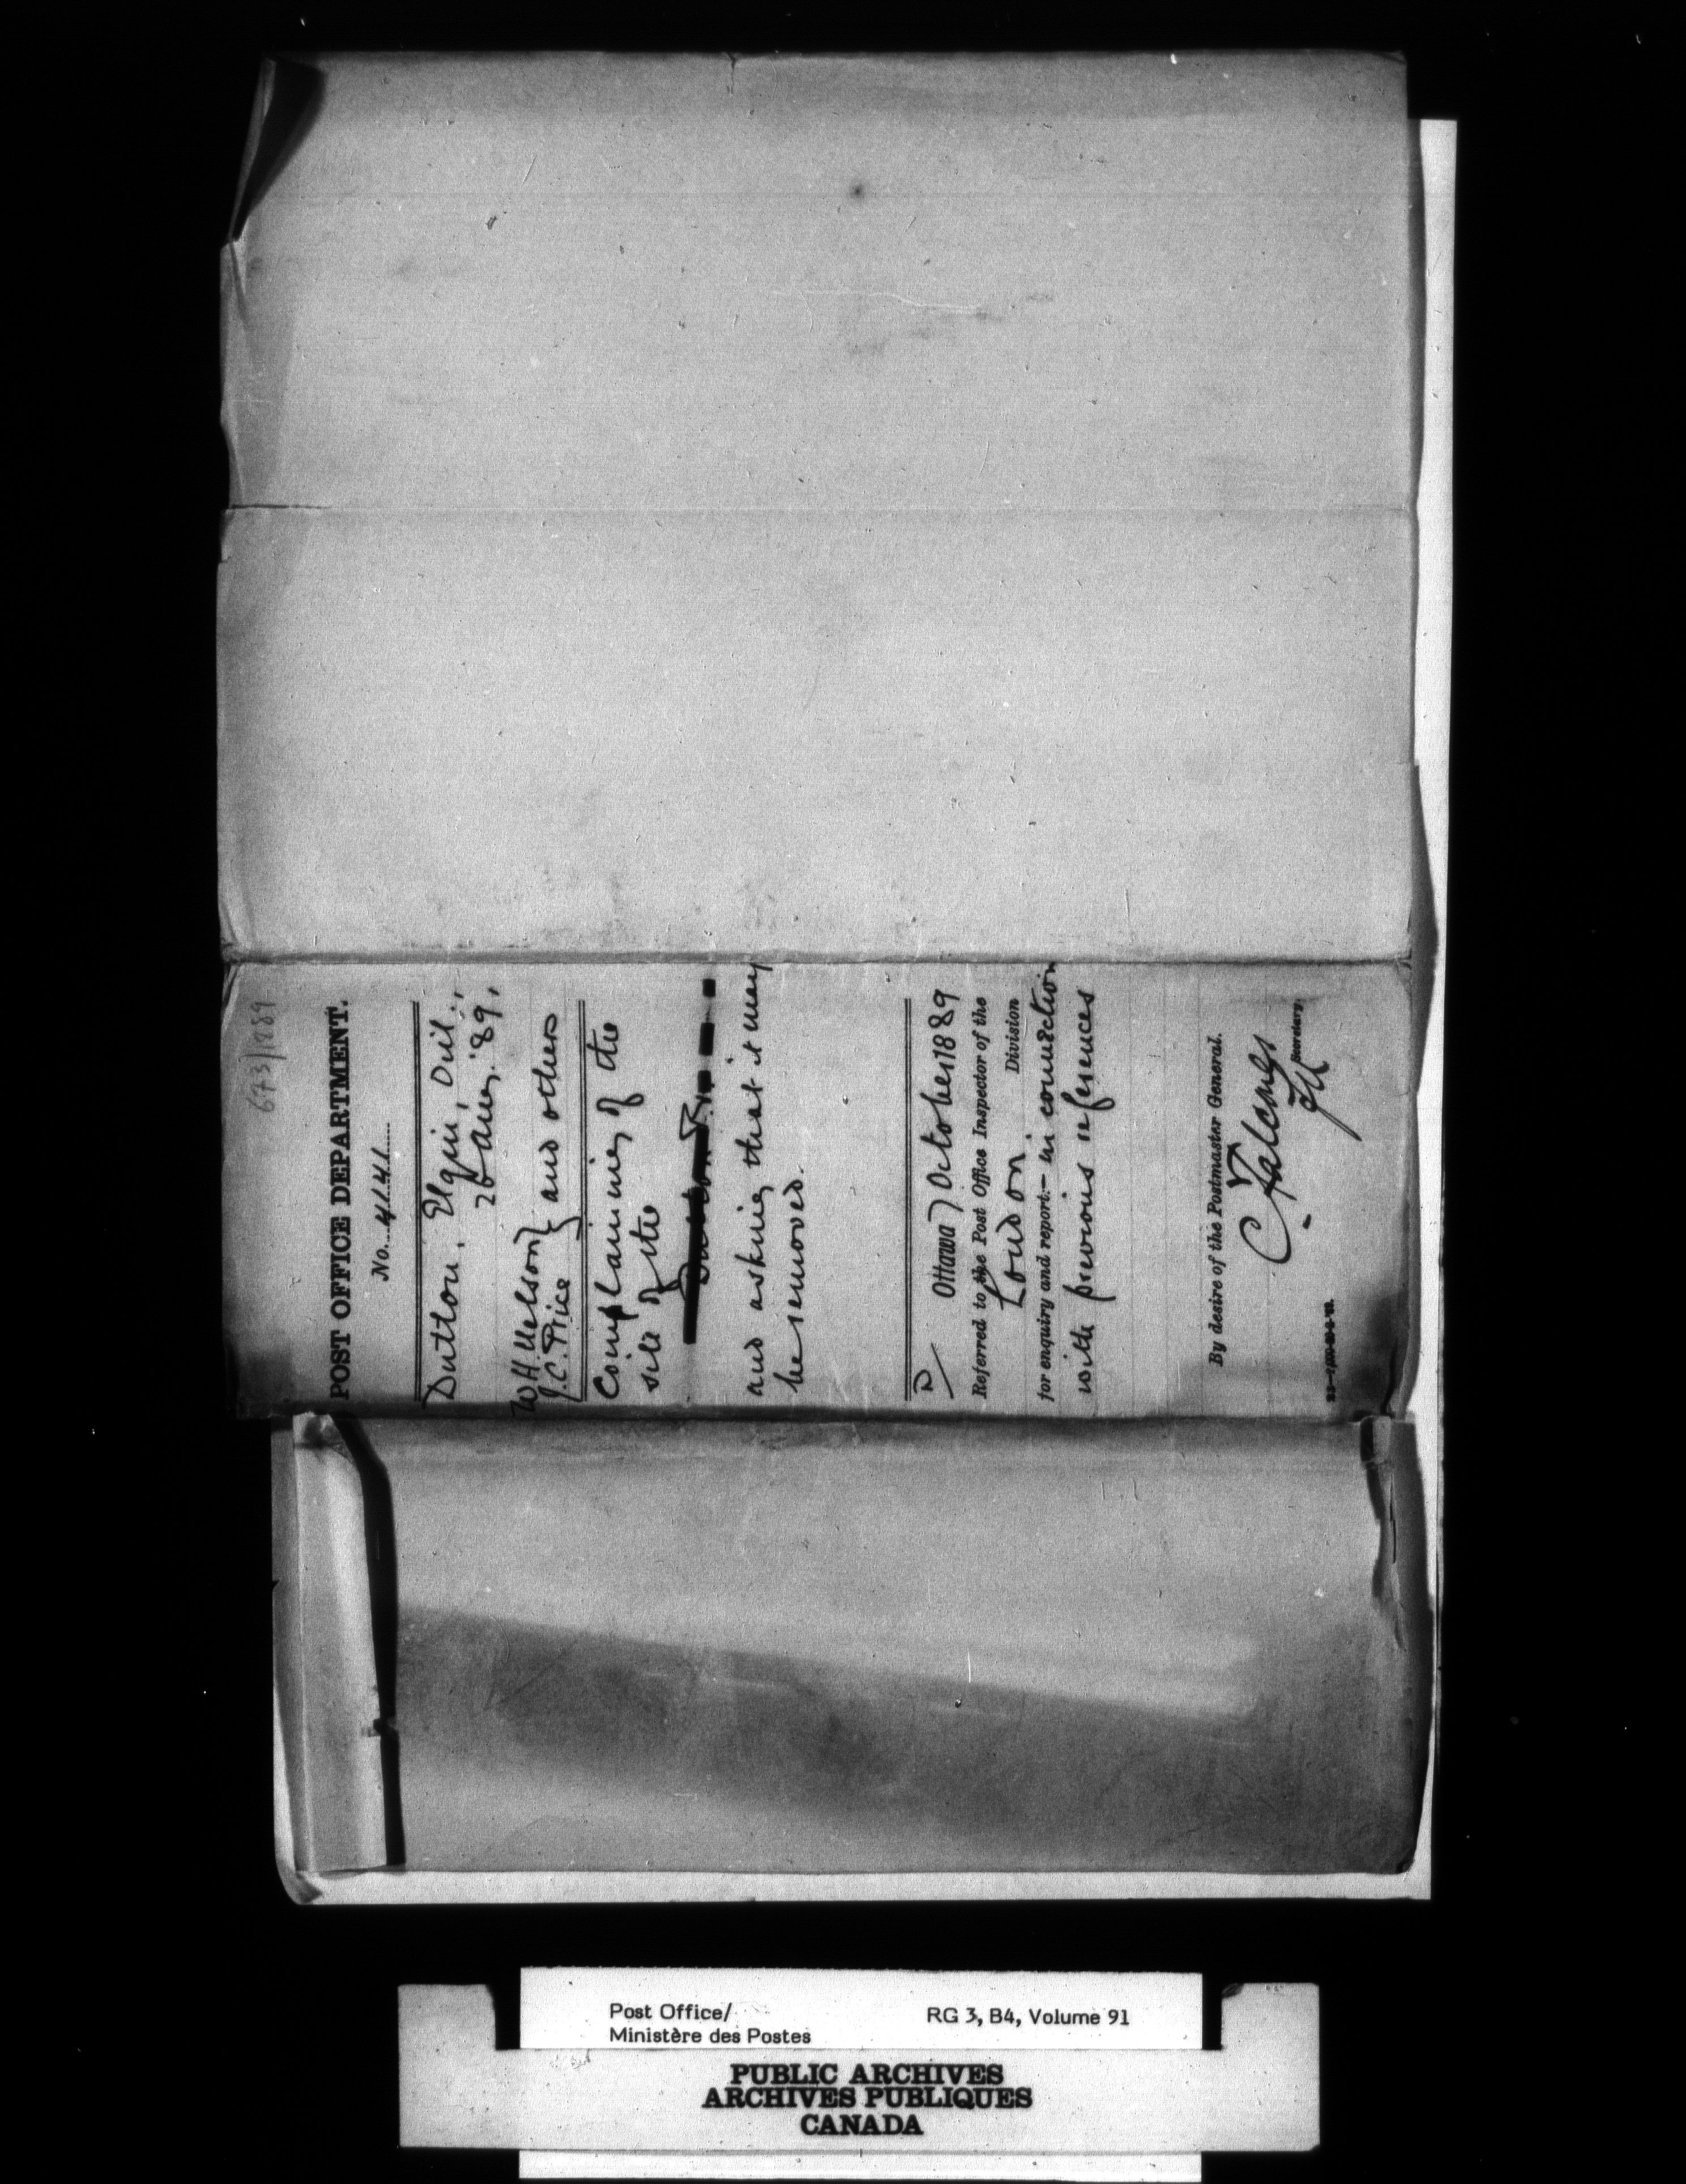 673/1889
POST OFFICE DEPARTMENT.
No. 4141
Dutton, Elgin, Ont.,
26 '89,
W H. Nelson } and others
J. C. Price
Complaining of the
site of the
and asking that it may
be removed.
D/ Ottawa 7 October 1889
Referred to the Post Office Inspector of the
London Division
for enquiry and report:- in connection
with previous references
By desire of the Postmaster General.
Secretary.
Post Office/
Ministère des Postes
RG 3, B4, Volume 91
PUBLIC ARCHIVES
ARCHIVES PUBLIQUES
CANADA